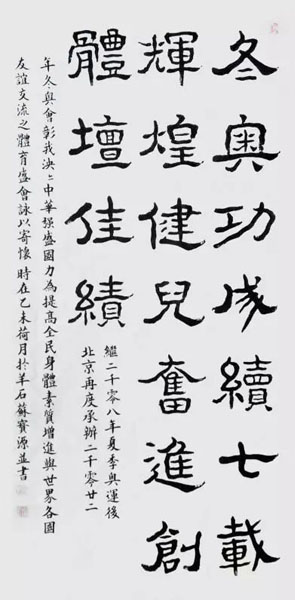 冬奧功成續七載
輝煌健兒奮進創
體壇佳績
繼二千零八年夏季奧運後
北京再度承辦二千零廿二
年冬奧會彰我泱〻中華强盛國力為提高全民身體素質增進與世界各國
友誼交流之體育盛會詠以寄懷 時在乙未荷月於羊石蘇寶源並書